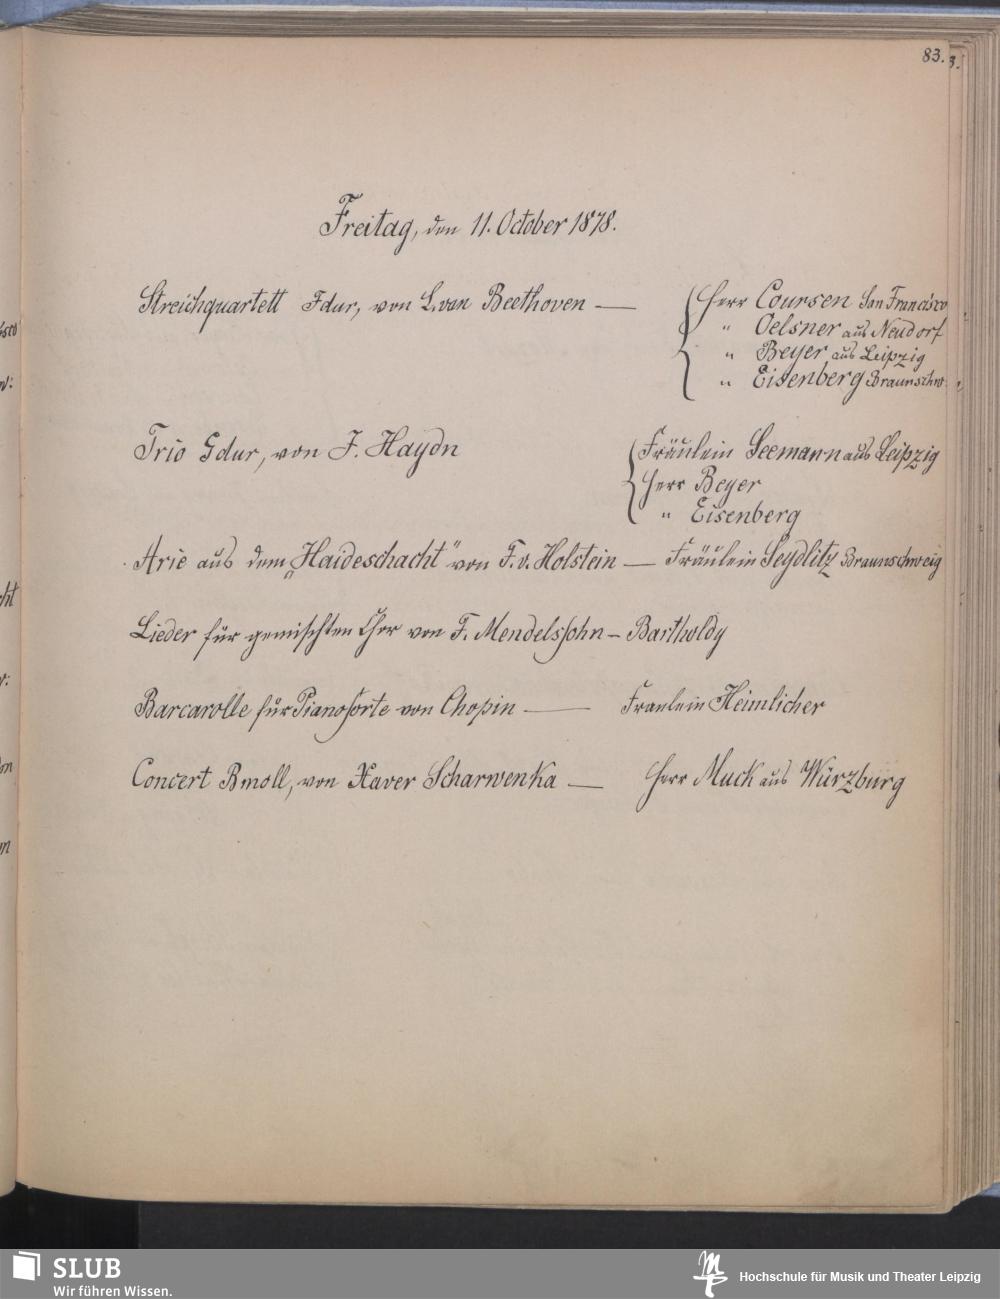 83.
Freitag, den 11. October 1878.
Streichquartett Fdur, von L. van Beethoven — Herr Coursen San Francisco
" Oelsner aus Neudorf
" Beyer aus Leipzig
" Eisenberg Braunschw.
Trio Gdur, von J. Haydn Fräulein Seemann aus Leipzig
Herr Beyer
" Eisenberg
Arie aus dem „Haideschacht" von F. v. Holstein — Fräulein Seydlitz Braunschweig
Lieder für gemischten Chor von F. Mendelssohn-Bartholdy
Barcarolle für Pianoforte von Chopin — Fraulein Heimlicher
Concert Bmoll, von Xaver Scharwenka — Herr Muck aus Würzburg
SLUB
Wir führen Wissen.
Hochschule für Musik und Theater Leipzig